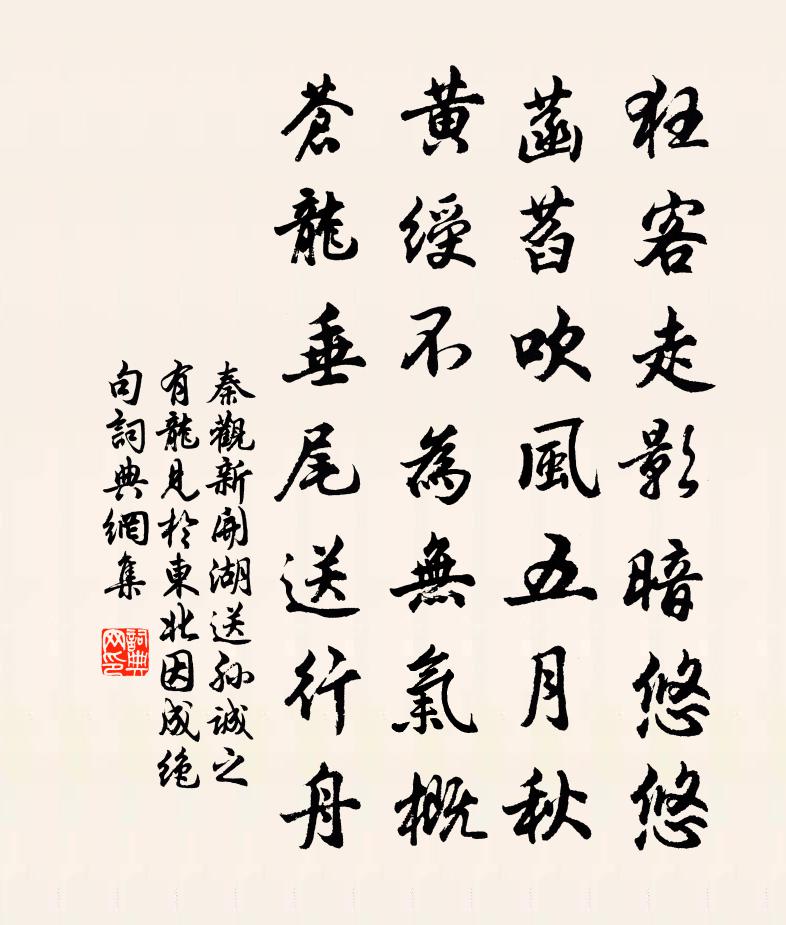 狂客走影暗悠悠
菡萏吹風五月秋
黃綬不為無氣概
蒼龍垂尾送行舟
秦觀新開湖送孫誠之
有龍見於東北因成絶
句詞典網集
詞典网印